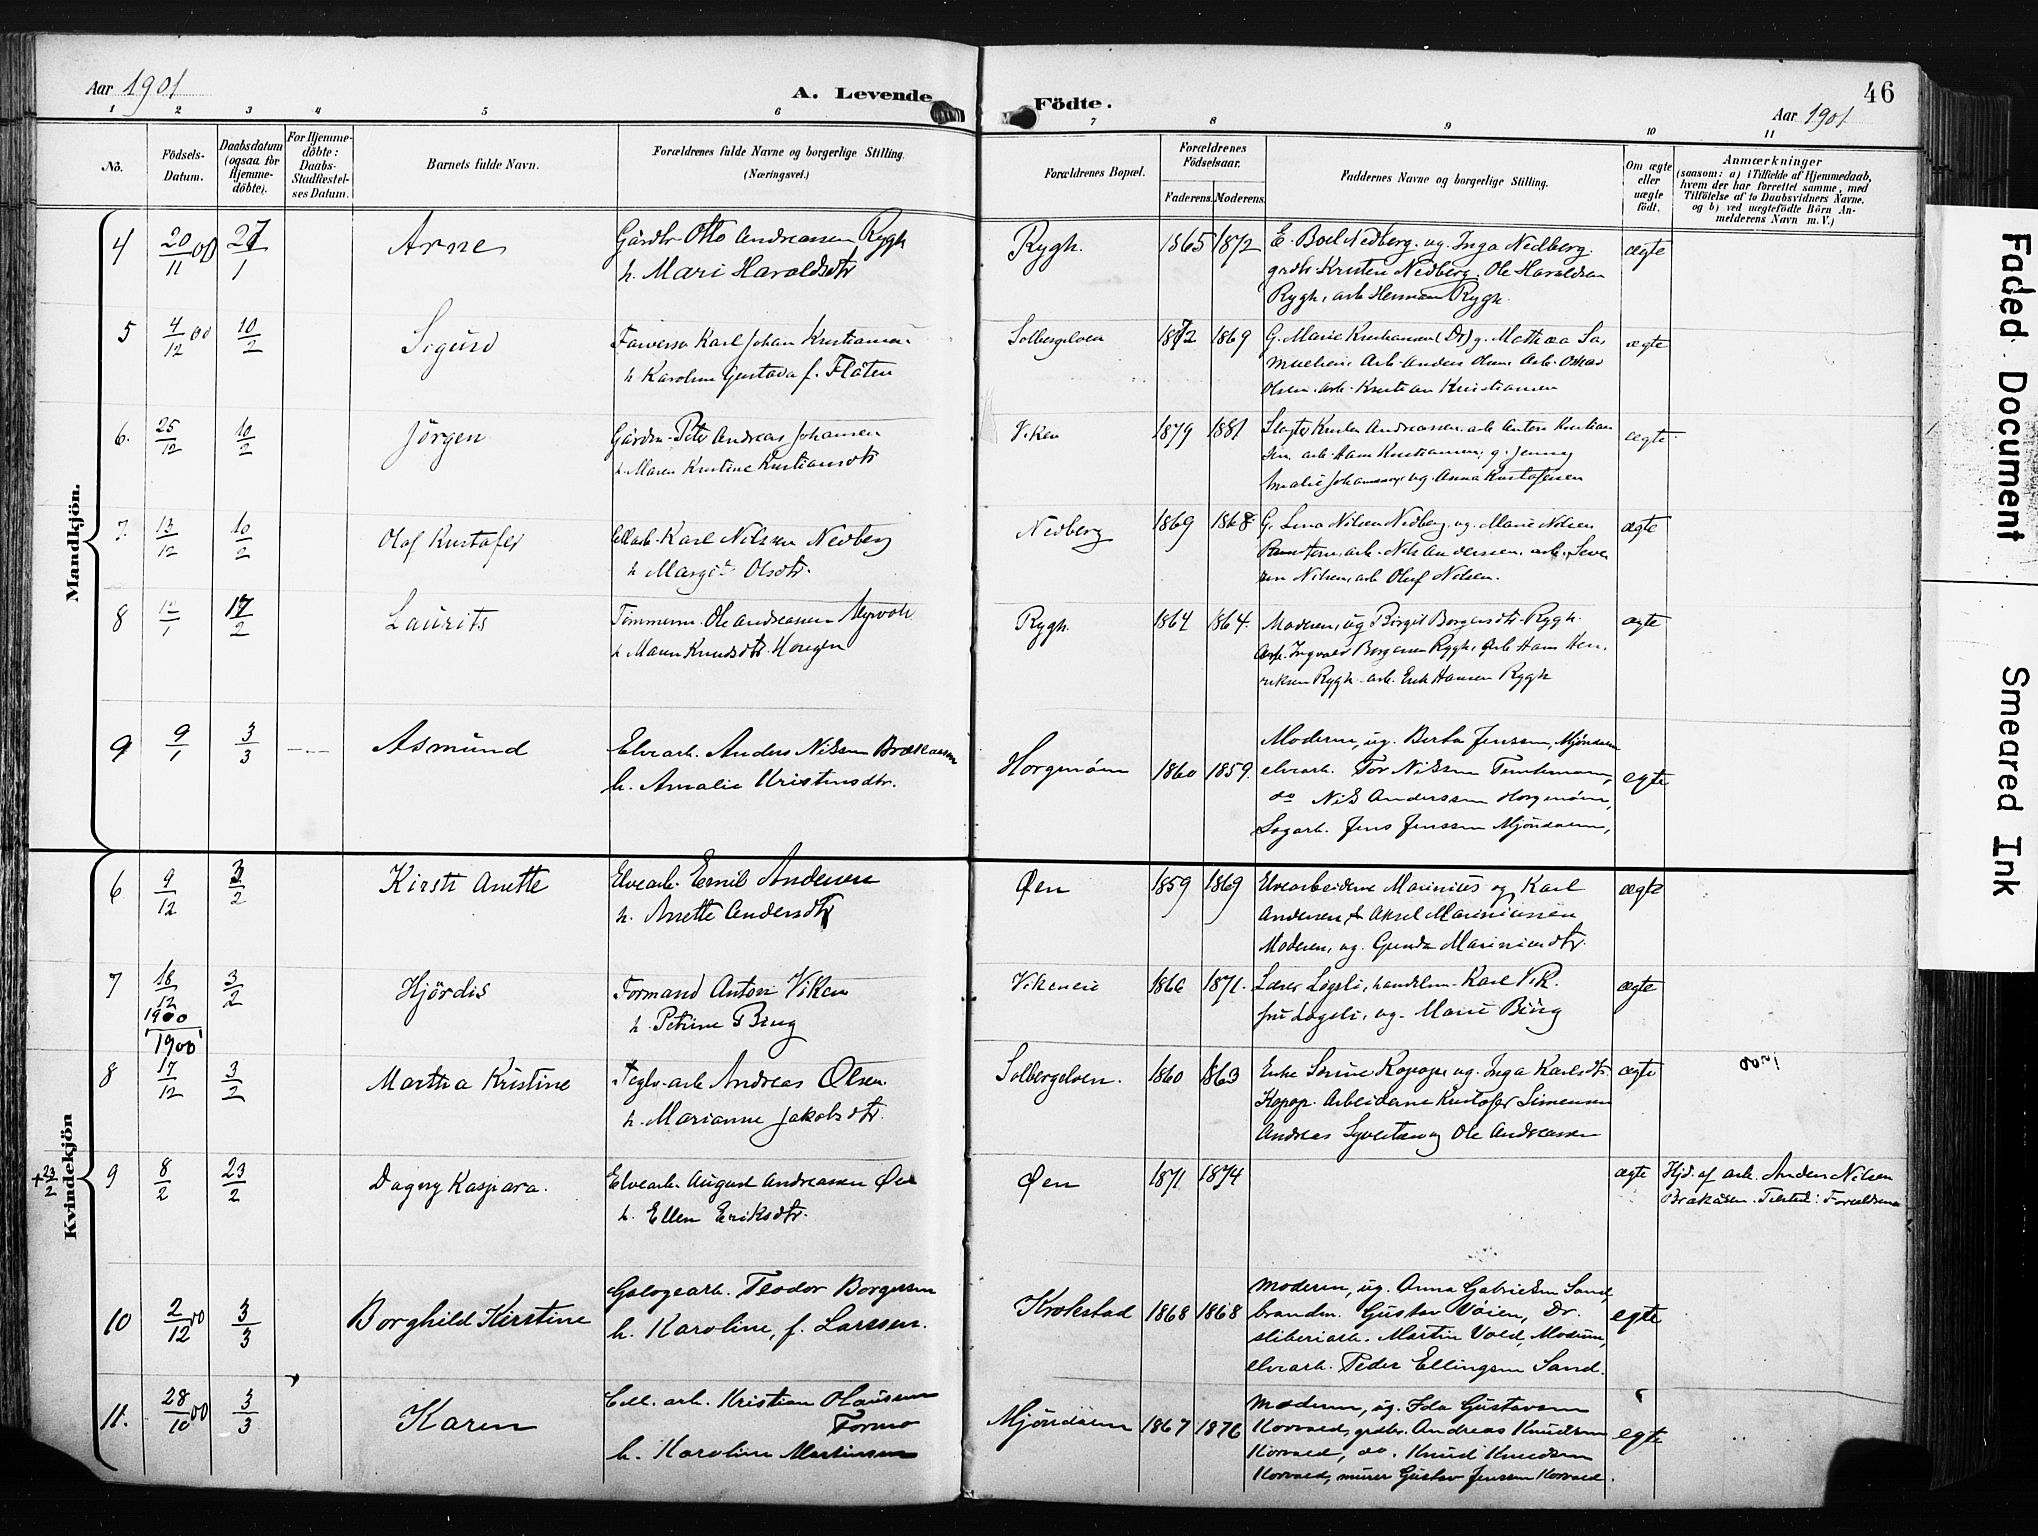 Aar 1901
A. Levende
Födte.
46
Aar 1901
1 2 3 4 5 6 7 8 9 10 11
No.
Födsels-
Datum.
Daabsdatum
(ogsaa for
Hjemme-
döbte).
For Hjemme-
döbte:
Daabs-
Stadfæstel-
ses Datum.
Barnets fulde Navn.
Forældrenes fulde Navne og borgerlige Stilling.
(Næringsvei.)
Forældrenes Bopæl.
Forældrenes
Födselsaar.
Faderens. Moderens.
Faddernes Navne og borgerlige Stilling.
Om ægte
eller
uægte
födt.
Anmærkninger
(saasom: a) i Tilfælde af Hjemmedaab,
hvem der har forrettet samme, med
Tilföielse af to Daabsvidners Navne,
og b) ved uægtefödte Börn An-
melderens Navn m. V.)
Mandkjön.
4 20/11 00 27/1 Arne
Gårdbr Otto Andreassen Rygh
h. Mari Haraldsdtr
Rygh. 1865 1872
E. Boel Nedberg. og Inga Nedberg.
grdb Kristen Nedberg. Ole Haraldsen
Rygh, arb Herman Rygh
ægte
5 4/12 00 10/2 Sigurd
Farversv Karl Johan Kristiansen
h Karoline Gustava f. Flåten
Solbergelven 1872 1869
G. Marie Kristiansen (Dr) g. Mathea Sa-
muelsen. Arb Anders Olsen. Arb. Oskar
Olsen. arb. Kristian Kristiansen
ægte
6. 25/12 10/2 Jörgen
Gårdm. Peter Andreas Johansen
h. Maren Kristine Kristiansdtr
Viken 1879 1881
Slagter Andreassen. arb Anton Kristian
sen. arb. Hans Kristiansen, g. Jenny
Amalie Johannsen og Anna Kristofersen
ægte
7. 13/12 10/2 Olaf Kristofer
Karl Nilsen Nedberg
h Olsdtr.
Nedberg 1869 1868
G. Lina Nilsen Nedberg og. Marie Nilsen
arb. Nils Anderssen. arb. Seve
rin Nilsen, arb Oluf Nilsen.
ægte
8 12/1 17/2 Laurits
Tömmerm. Ole Andreassen Myrvold
h Maren Knudsdtr. Horgen
Rygh. 1864 1864.
Moderen, og Birgit Borgersdtr. Rygh.
Arb. Ingvald Borgersen Rygh, Arb Hans Hen-
riksen Rygh. arb. Erik Hansen Rygh
ægte
9 9/1 3/3 Asmund
Elvearb. Anders Nilsen Brækåsen
h. Amalie Kristinsdtr.
Horgenmoen 1860 1859.
Moderen, ug. Berta Jenssen, Mjöndalen
elvearb. Tor Nilssen Temtemoen,
do Nils Anderssen Horgenmoen,
Sagarb. Jens Jenssen Mjöndalen,
egte
Kvindekjön
6 9/12 3/2 Kirsti Anette
Elvearb. Emil Andersen
h. Anette Andersdtr
Øen 1859 1869
Elvearbeiderne Marinius og Karl
Andersen & Aksel Mariniussen
Moderen, og. Gunda Mariniusdtr.
ægte
7 18/12 1900 3/2 Hjördis
Formand Anton Viken
h. Petrine Bing
Vikeneie 1866 1871.
Lærer Lögsli, handelsm. Karl Vik.
fru Lögsli, og. Marie Bing
ægte
1900
8 17/12 3/2 Martha Kristine
Teglv. arb Andreas Olsen
h. Marianne Jakobsdtr.
Solbergelven. 1860 1863
Enke Sörine Kopop og. Inga Karlsdtr.
Kopop. Arbeiderne Kristofer Simensen
Andreas Syvertsen og Ole Andreassen
ægte
+23/2
9 8/2 23/2 Dagny Kaspara.
Elvearb. August Andreassen Öen
h. Ellen Eriksdtr.
Øen 1871 1874
ægte
Hjd. af arb. Anders Nilsen
Brækåsen. Tilsted: Forældrene
10 2/12 00 3/3 Borghild Kirstine
Galogearb. Teodor Borgersen
h. Karoline, f. Larssen.
Krokstad 1868 1868
Moderen, ug. Anna Gabrielsen Sand,
brandm. Gustav Vöien, Dr.
sliberiarb. Martin Vold, Modum,
elvearb. Peder Ellingsen Sand.
egte
11. 28/10 00 3/3 Karen
Cell. arb. Kristian Olaussen
Formo
h. Karoline Martinsen
Mjöndalen 1867 1876
Moderen, ug. Ida Gustavsen
Korvald, grdbr. Andreas Knudsen
Korvald, do. Knud Knudsen
Korvald, murer Gustav Jenssen Korvald.
egte
Faded Document
Smeared Ink